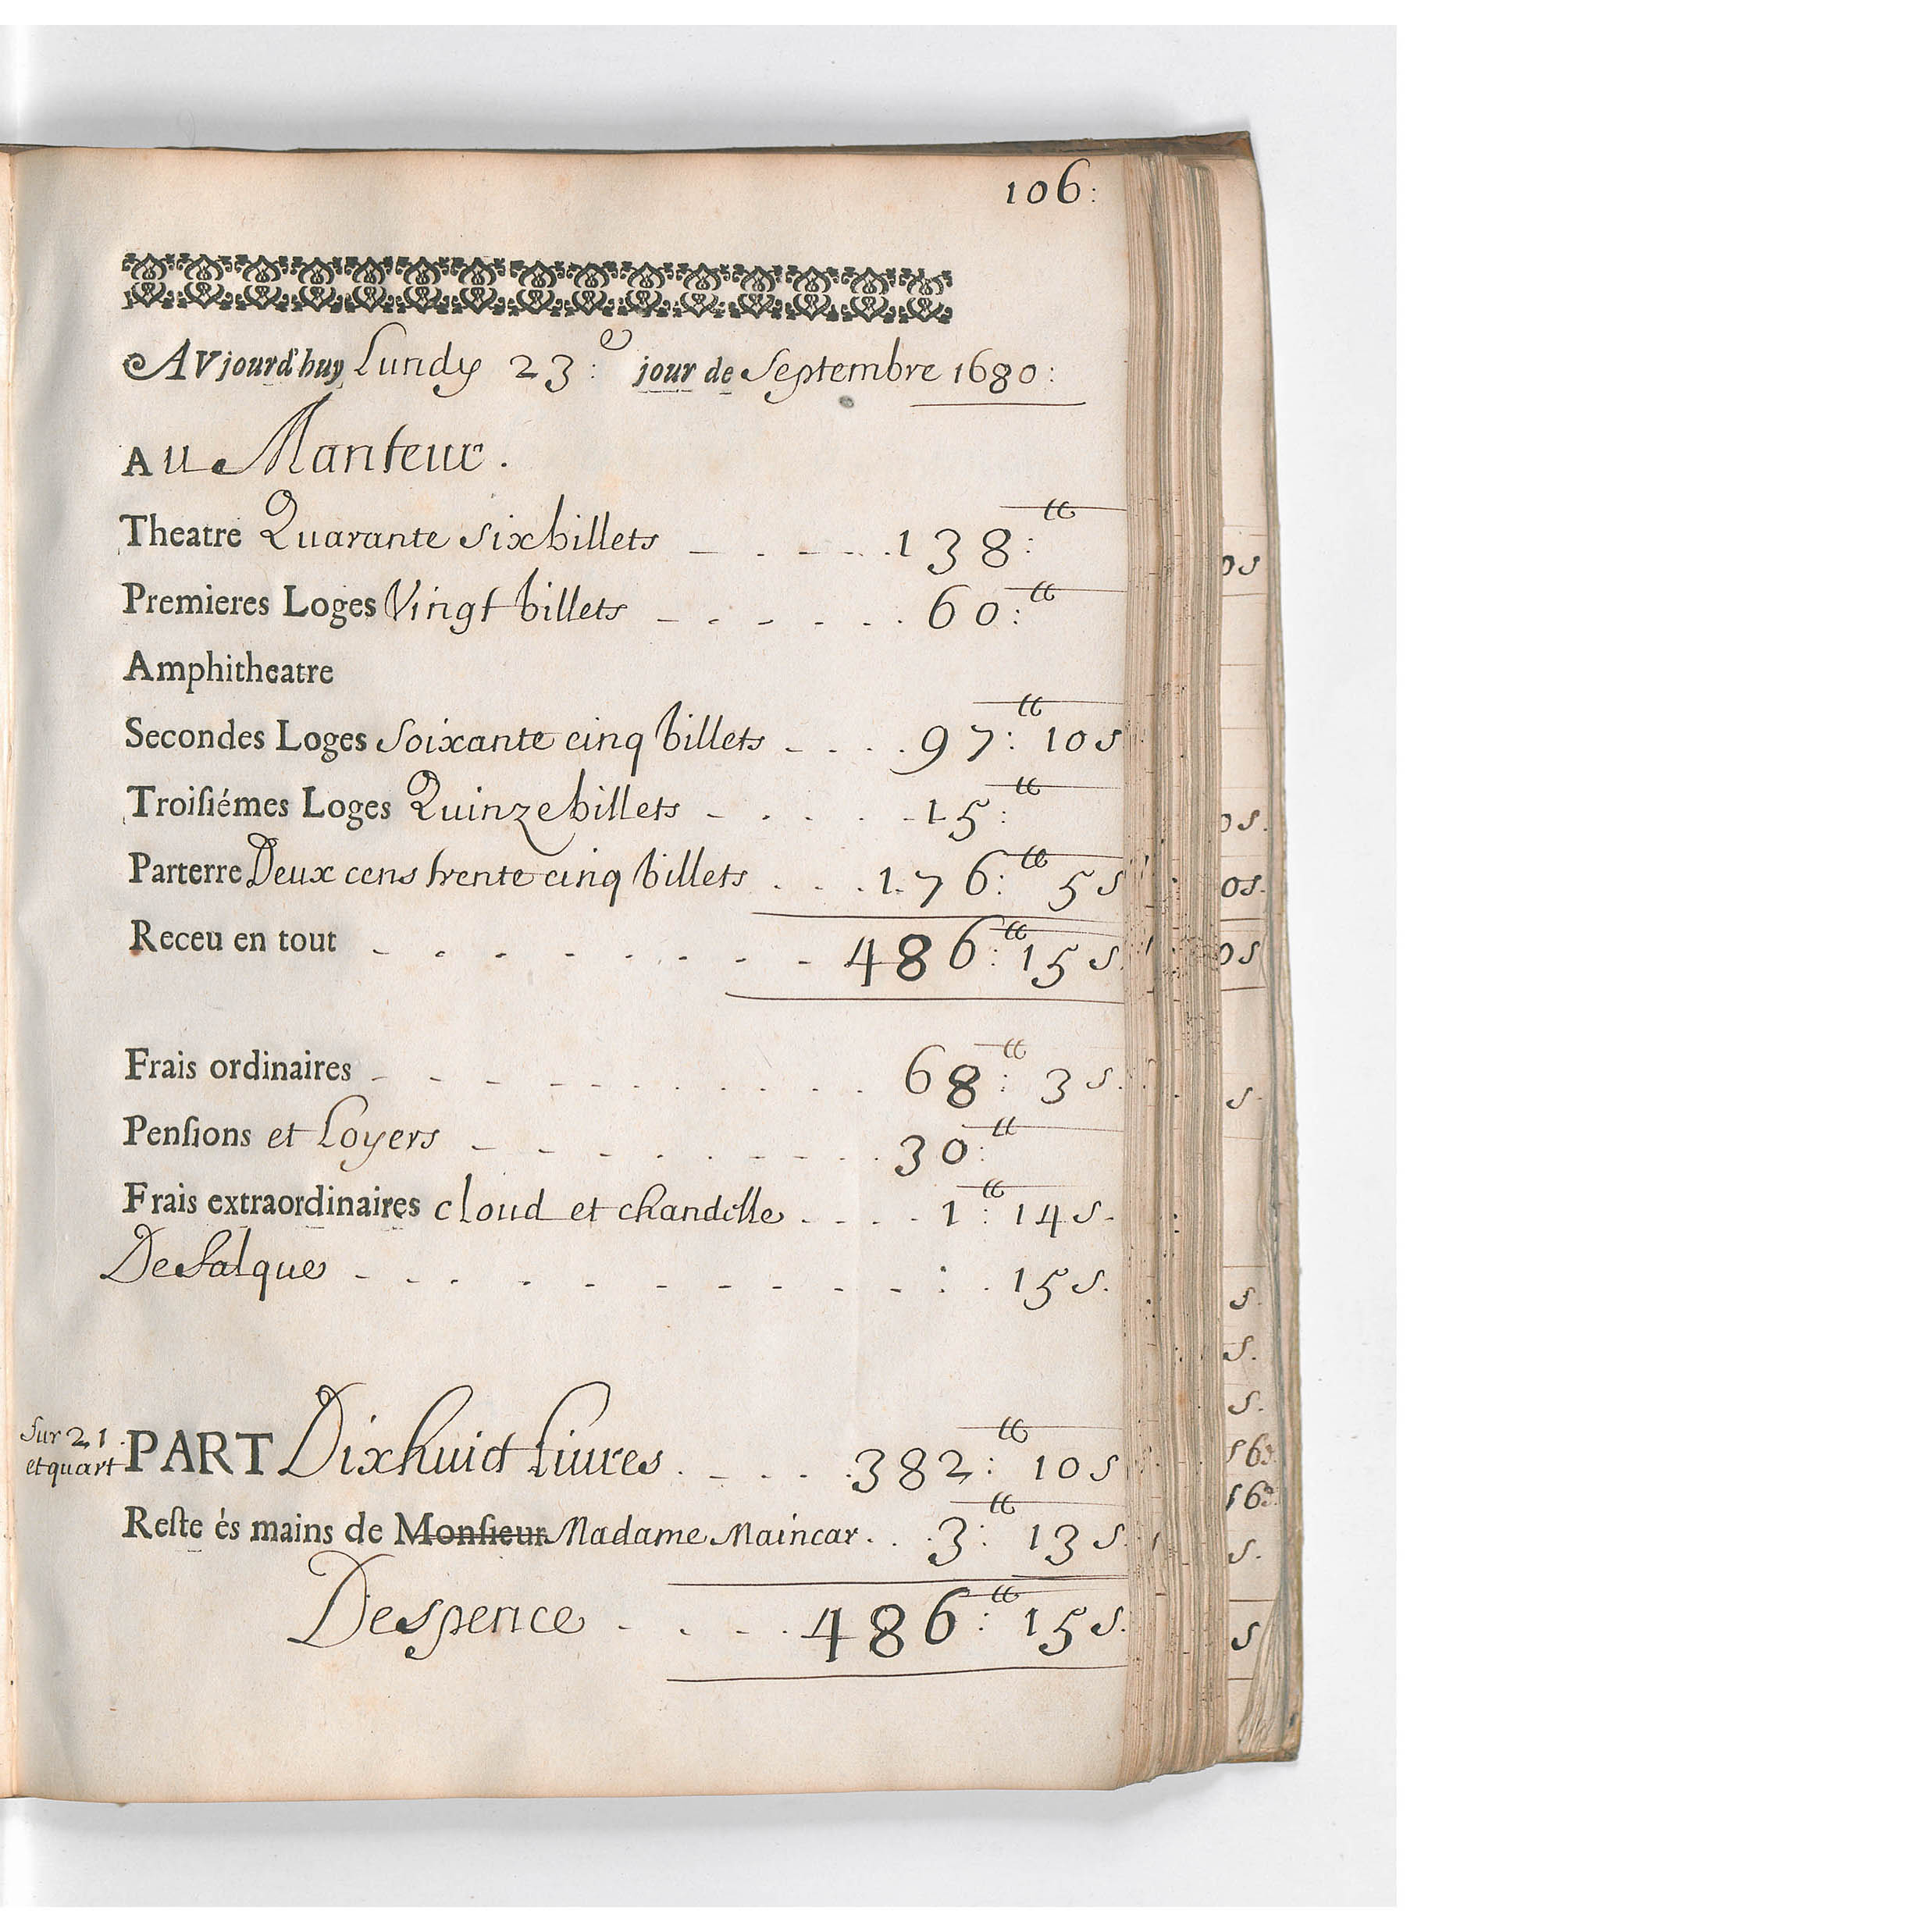 106:
AVjourd'huy Lundy 23:e jour de Septembre 1680:
AU Manteur.
Theatre Quarante six billets - . - - . . 138:tt
Premieres Loges Vingt billets - . - . - . . 60:tt
Amphitheatre
Secondes Loges Soixante cinq billets - . . . 97:tt 10s
Troisiémes Loges Quinze billets - . . . . - 15:tt
Parterre Deux cens trente cinq billets . . . 176:tt 5s
Receu en tout - . - . - . - . - - 486:tt 15s.
Frais ordinaires - - - - . - . - . . . . 68:tt 3s.
Pensions et Loyers - - - . - . - . . . 30:tt
Frais extraordinaires cloud et chandelle . . . . . 1:tt 14s.
DeSalque - . . . - . - . - . - - : . 15s.
Sur 21.
et quart
PART Dixhuict Liures . - . . . 382:tt 10s
Reste és mains de Monsieur Madame Maincar . . . 3:tt 13s.
Despence . . . . . 486:tt 15s.
0s
0s.
0s.
0s
s.
s.
s.
s.
s.
s